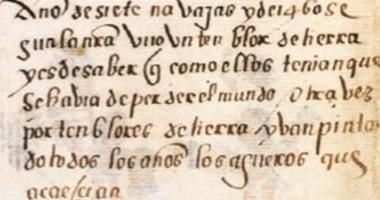 Año de siete navajas y de 1460 se
gun la nra vuo vn tenblor de tierra
y es de saber q como ellos tenian que
se habia de perder el mundo otra vez
por tenblores de tierra y van pintan
do todos los años los agueros que
acaescian